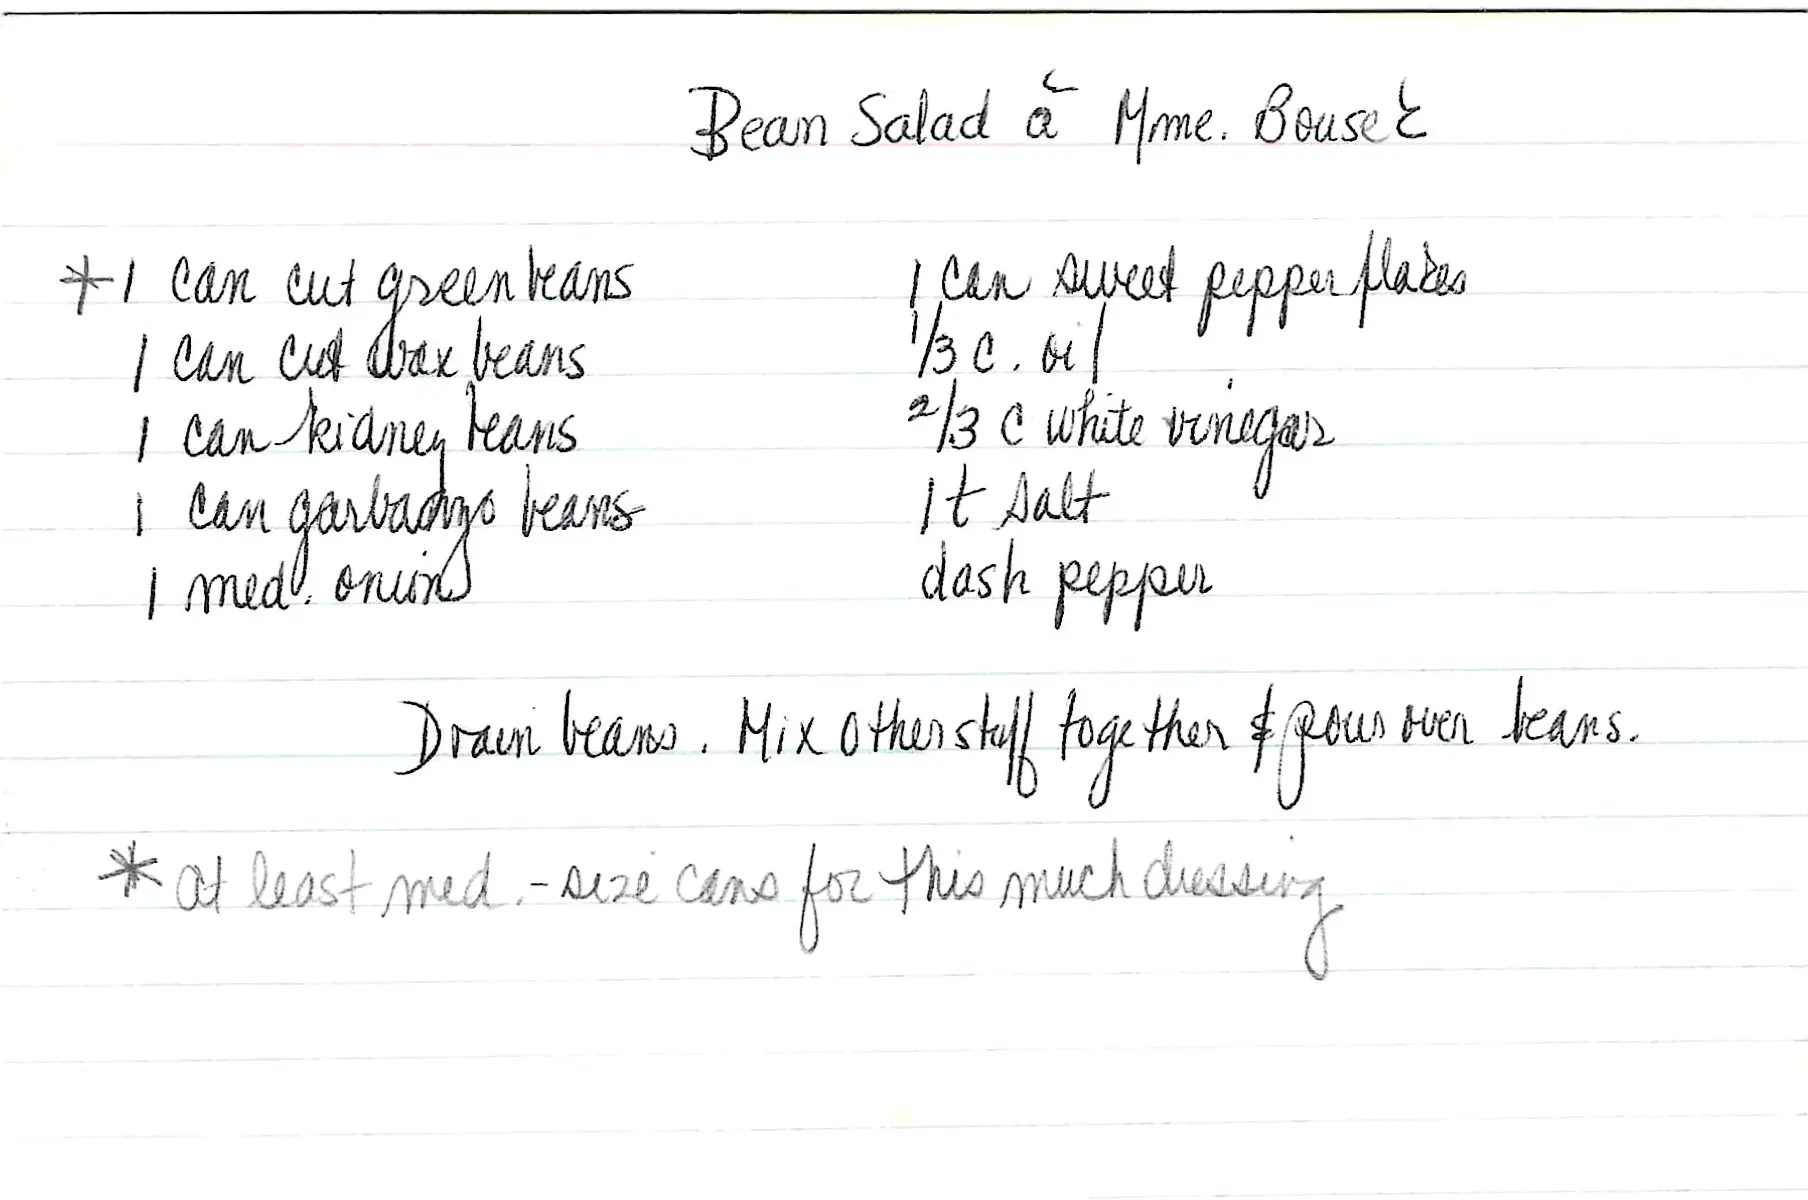 Bean Salad à Mme. Bouset
*1 can cut green beans
1 can cut wax beans
1 can kidney beans
1 can garbanzo beans
1 med. onion
1 can sweet pepper flakes
1/3 c. oil
2/3 c white vinegar
1 t salt
dash pepper
Drain beans. Mix other stuff together & pour over beans.
* at least med.-size cans for this much dressing